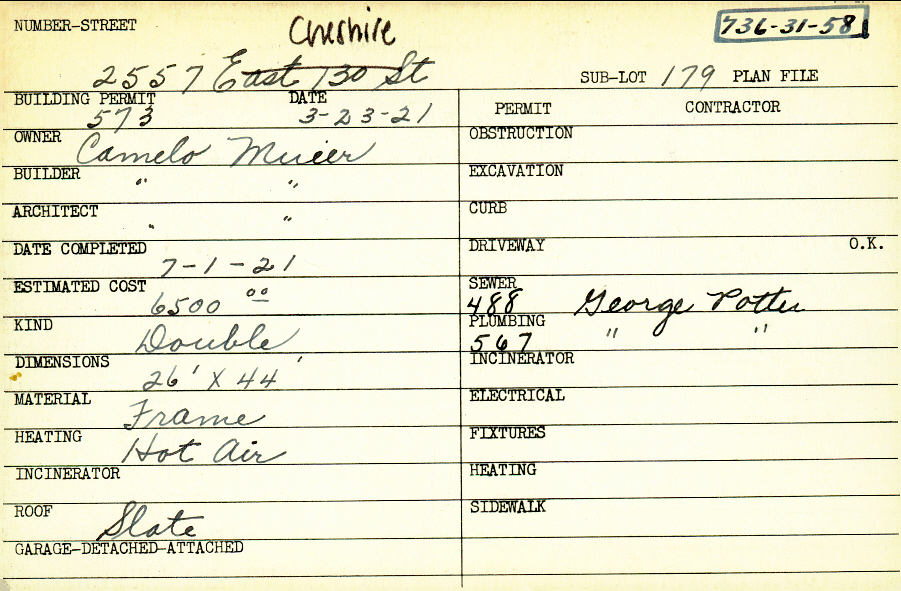 NUMBER-STREET
Cheshire
736-31-58
2557 East 130 St
SUB-LOT 179 PLAN FILE
BUILDING PERMIT DATE
573 3-23-21
PERMIT CONTRACTOR
OWNER Camelo
BUILDER " "
ARCHITECT " "
DATE COMPLETED
7-1-21
ESTIMATED COST
6500 00
KIND
Double
DIMENSIONS
26' X 44'
MATERIAL
Frame
HEATING
Hot Air
INCINERATOR
ROOF
Slate
GARAGE-DETACHED-ATTACHED
OBSTRUCTION
EXCAVATION
CURB
DRIVEWAY O.K.
SEWER
488 George Potter
PLUMBING
567 " "
INCINERATOR
ELECTRICAL
FIXTURES
HEATING
SIDEWALK